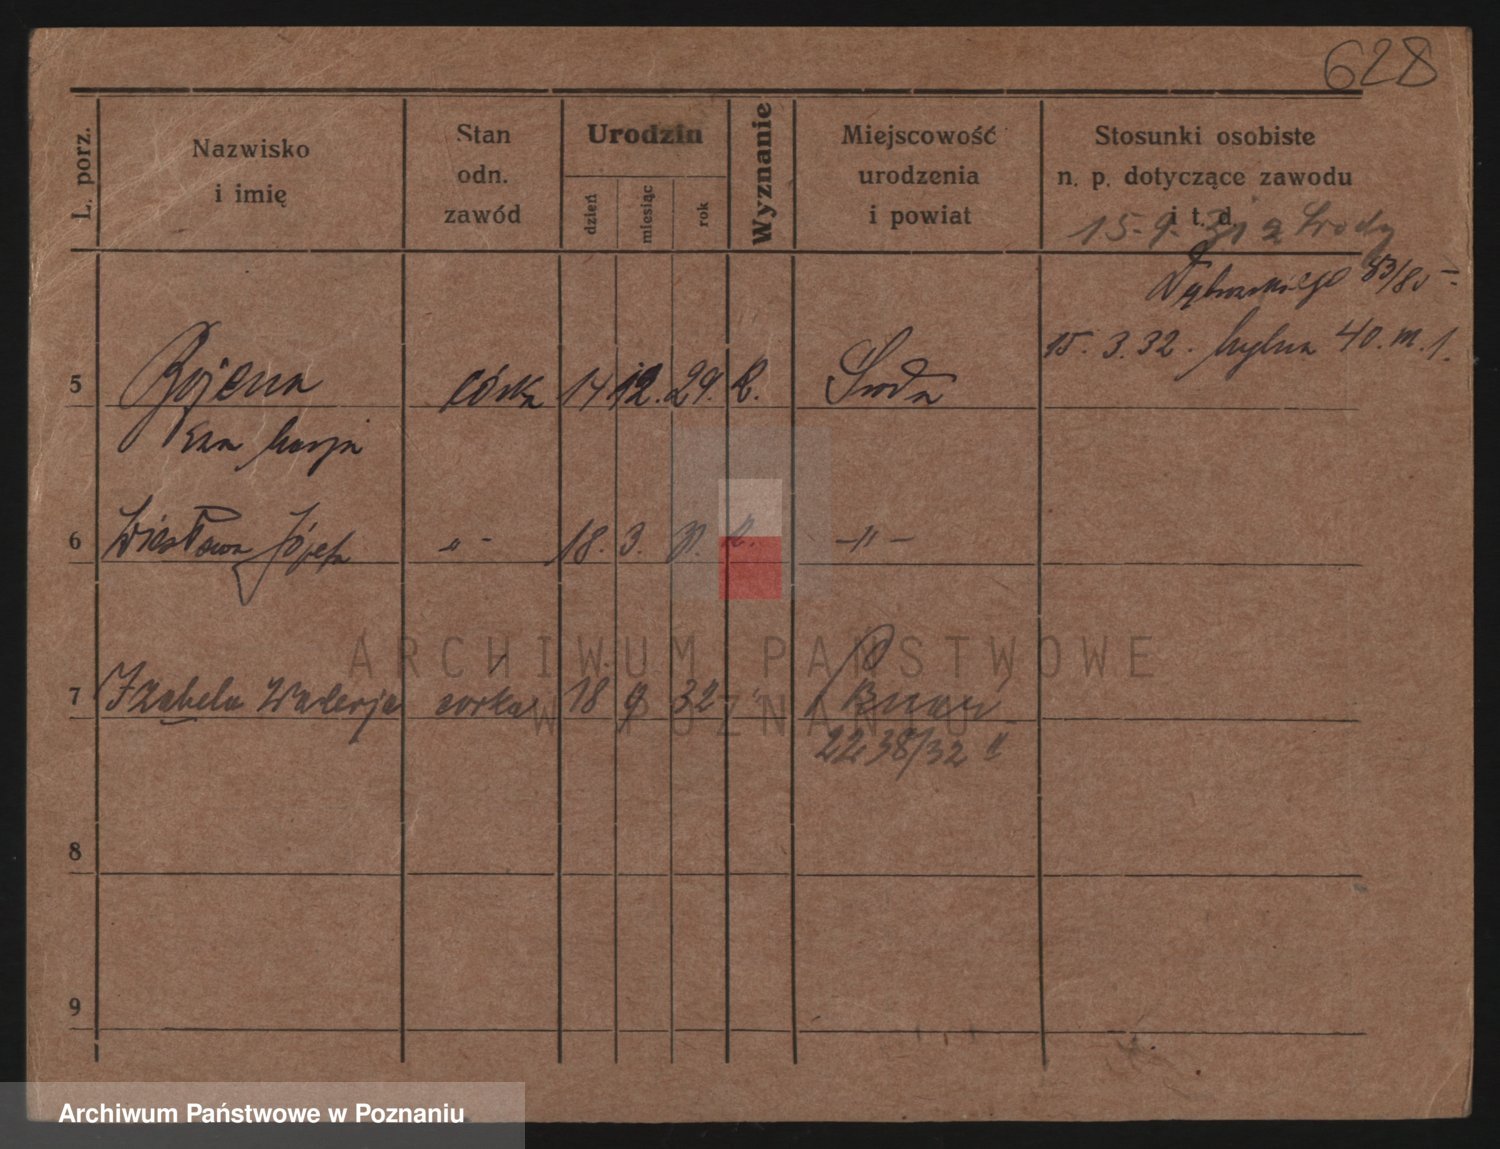 628
L. porz.
Nazwisko i imię
Stan odn. zawód
Urodzin
dzień
miesiąc
rok
Wyznanie
Miejscowość urodzenia i powiat
Stosunki osobiste n. p. dotyczące zawodu i t. d.
15. 9. 31 z Środy
Dąbrowskiego 83/85
15. 3. 32. 40. m. 1.
5 Bojena córka 14 12. 29. Środa
Ewa Marja
6 Wiesława Józefa -"- 18. 3. -"-
7 Izabela Walerja córka 18 9 32
2238/32 "
8
9
ARCHIWUM PAŃSTWOWE
W POZNANIU
Archiwum Państwowe w Poznaniu